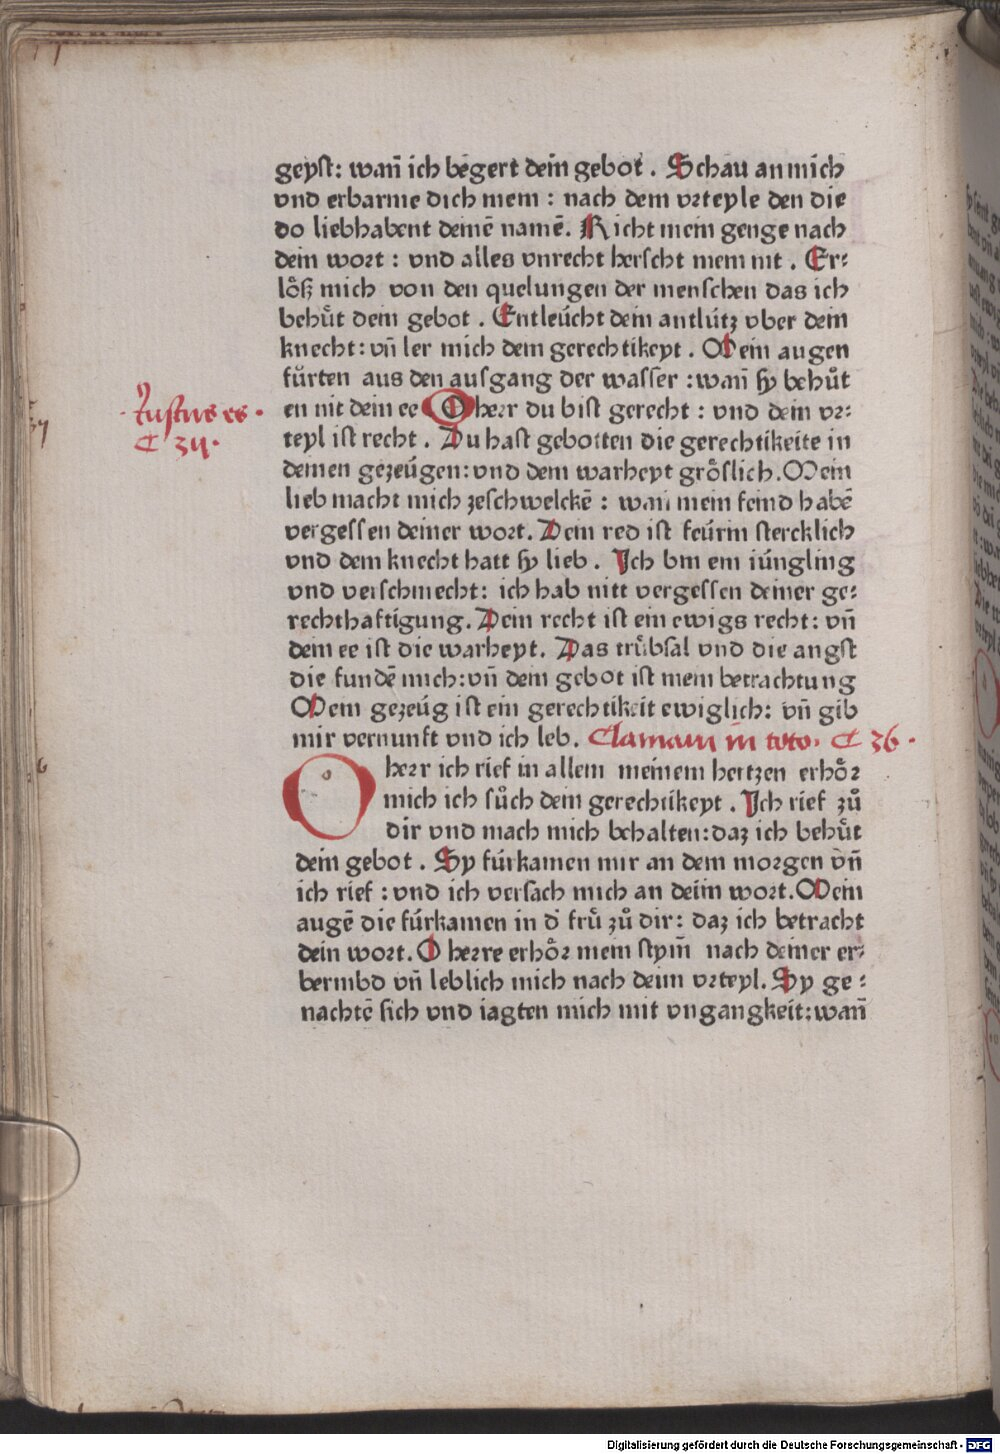 geyst: wan̄ ich begert dein gebot. Schau an mich
vnd erbarme dich mein : nach dem vrteyle den die
do liebhabent deinē namē. Richt mein genge nach
dein wort : vnd alles vnrecht herscht mein nit. Er:
loͤß mich von den quelungen der menschen das ich
behuͤt dein gebot. Entleúcht dein antlútz vber dein
knecht: vn̄ ler mich dein gerechtikeyt. Mein augen
fúrten aus den ausgang der wasser : wan̄ sy behuͤt
Iustus es.
C 35.
en nit dein ee O herr du bist gerecht : vnd dein vr:
teyl ist recht. Du hast gebotten die gerechtikeite in
deinen gezeúgen: vnd dein warheyt groͤslich. Mein
lieb macht mich zeschwelckē : wan mein feind habē
vergessen deiner wort. Dein red ist feúrin stercklich
vnd dein knecht hatt sy lieb. Ich bin ein iúngling
vnd verschmecht: ich hab nitt vergessen deiner ge:
rechthaftigung. Dein recht ist ein ewigs recht: vn̄
dein ee ist die warheyt. Das truͤbsal vnd die angst
die fundē mich: vn̄ dein gebot ist mein betrachtung
Mein gezeúg ist ein gerechtikeit ewiglich: vn̄ gib
mir vernunft vnd ich leb. Clamaui in toto. C 36.
O herr ich rief in allem meinem hertzen erhoͤr
mich ich suͦch dein gerechtikeyt. Ich rief zuͦ
dir vnd mach mich behalten: daz ich behuͤt
dein gebot. Sy fúrkamen mir an dem morgen vn̄
ich rief : vnd ich versach mich an deim wort. Mein
augē die fúrkamen in d̄ fruͤ zuͦ dir: daz ich betracht
dein wort. O herre erhoͤr mein stym̄ nach deiner er:
bermbd vn̄ leblich mich nach deim vrteyl. Sy ge:
nachtē sich vnd iagten mich mit vngangkeit: wan̄
Digitalisierung gefördert durch die Deutsche Forschungsgemeinschaft - DFG